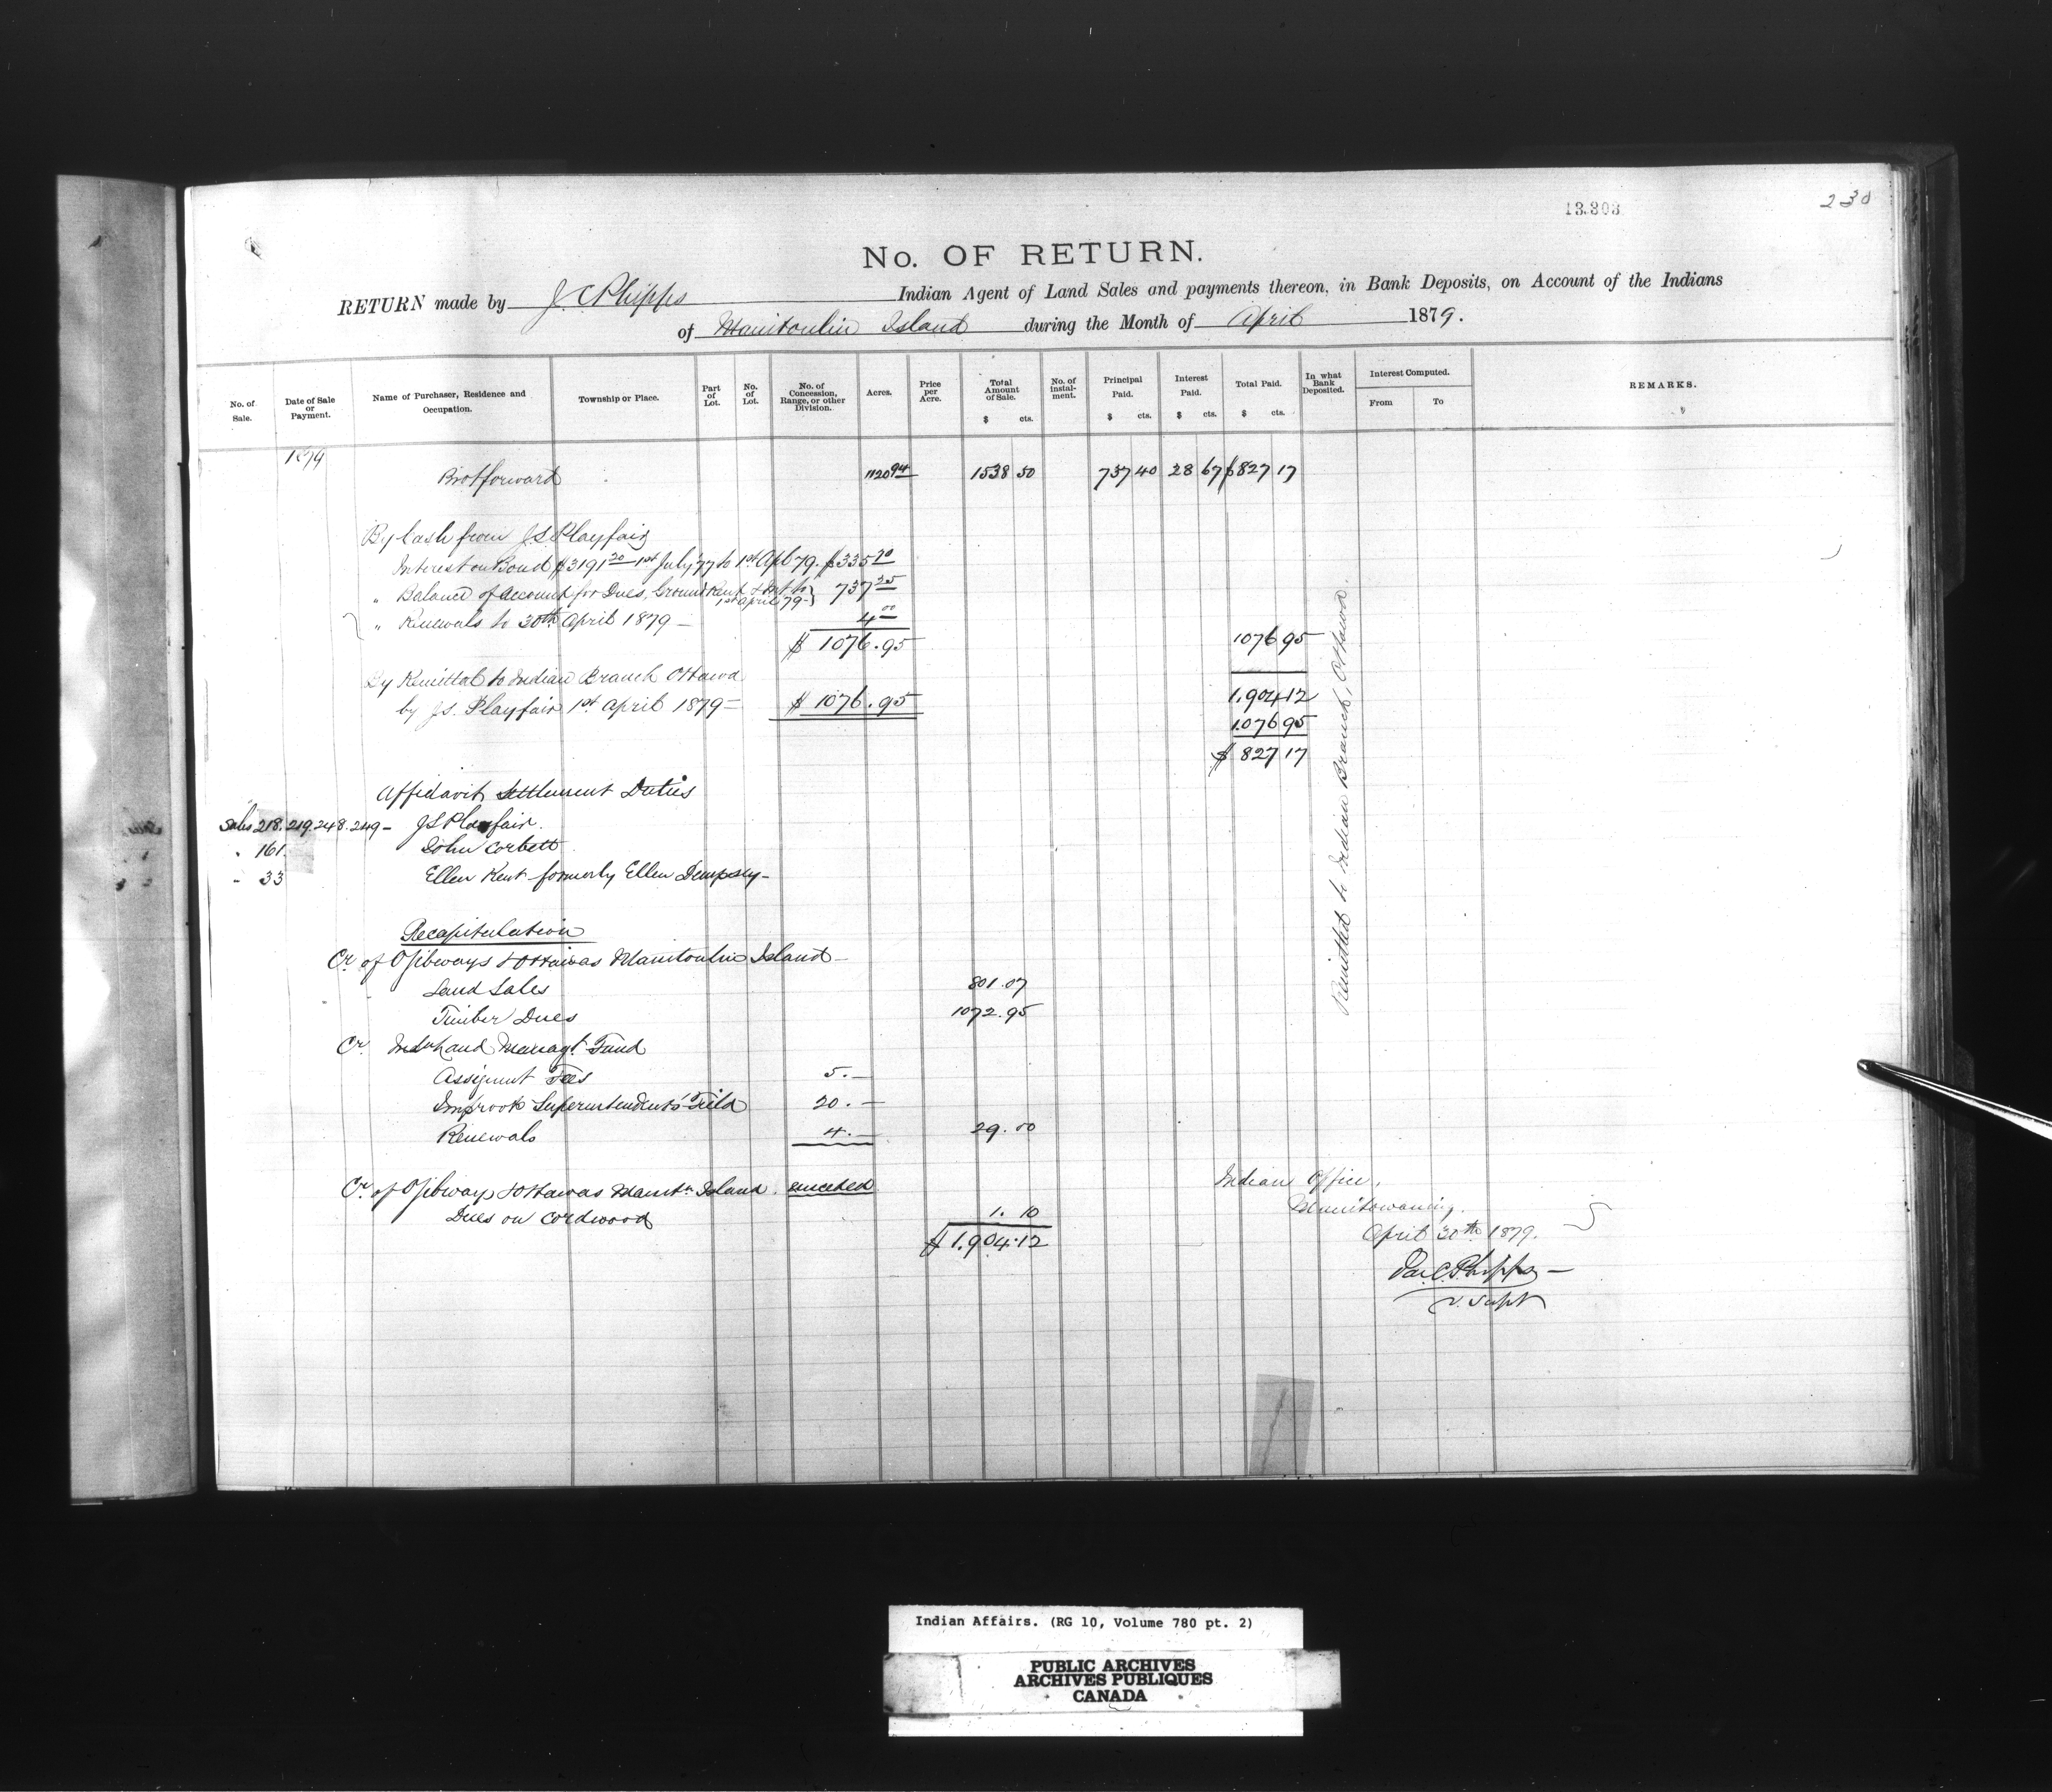 13.303
230
No. OF RETURN.
RETURN made by J. C. Phipps Indian Agent of Land Sales and payments thereon, in Bank Deposits, on Account of the Indians
of Manitoulin Island during the Month of April 1879.
No. of Sale.
Date of Sale or Payment.
Name of Purchaser, Residence and Occupation.
Township or Place.
Part of Lot.
No. of Lot.
No. of Concession, Range, or other Division.
Acres.
Price per Acre.
Total Amount of Sale. $ cts.
No. of Instalment.
Principal Paid. $ cts.
Interest Paid. $ cts.
Total Paid. $ cts.
In what Bank Deposited.
Interest Computed.
From
To
REMARKS.
1879
Brot forward 1120 94 1538 50 737 40 28 67 $827 17
By Cash from J.S. Playfair
Interest on Bond $3191 20 1st July '77 to 1st Apl 79. $335 70
" Balance of Account for Dues, Ground Rent & Int to 1st April 79 - 737 25
" Renewals to 30th April 1879 - 4 00
$ 1076.95 1076 95
By Remittal to Indian Branch Ottawa
by J.S. Playfair 1st April 1879 - $ 1076.95
1.904 12
1.076 95
$ 827 17
Remitted to Indian Branch, Ottawa.
Affidavit Settlement Duties
Sales 218. 219. 248. 249 - J S Playfair.
" 161. John Corbett
" 33 Ellen Kent formerly Ellen Dempsey -
Recapitulation
Cr of Ojibways & Ottawas Manitoulin Island -
Land Sales 801.07
Timber Dues 1072.95
Cr. Ind Land Managt. Fund
Assignmt Fees 5.-
20.-
Renewals 4.- 29.00
Cr. of Ojibways & Ottawas Manitn Island. unceded
Dues on Cordwood 1. 10
$ 1.904.12
Indian Office,
Manitowaning.
April 30th 1879.
Jas. C. Phipps -
V. Supt
Indian Affairs. (RG 10, Volume 780 pt. 2)
PUBLIC ARCHIVES
ARCHIVES PUBLIQUES
CANADA